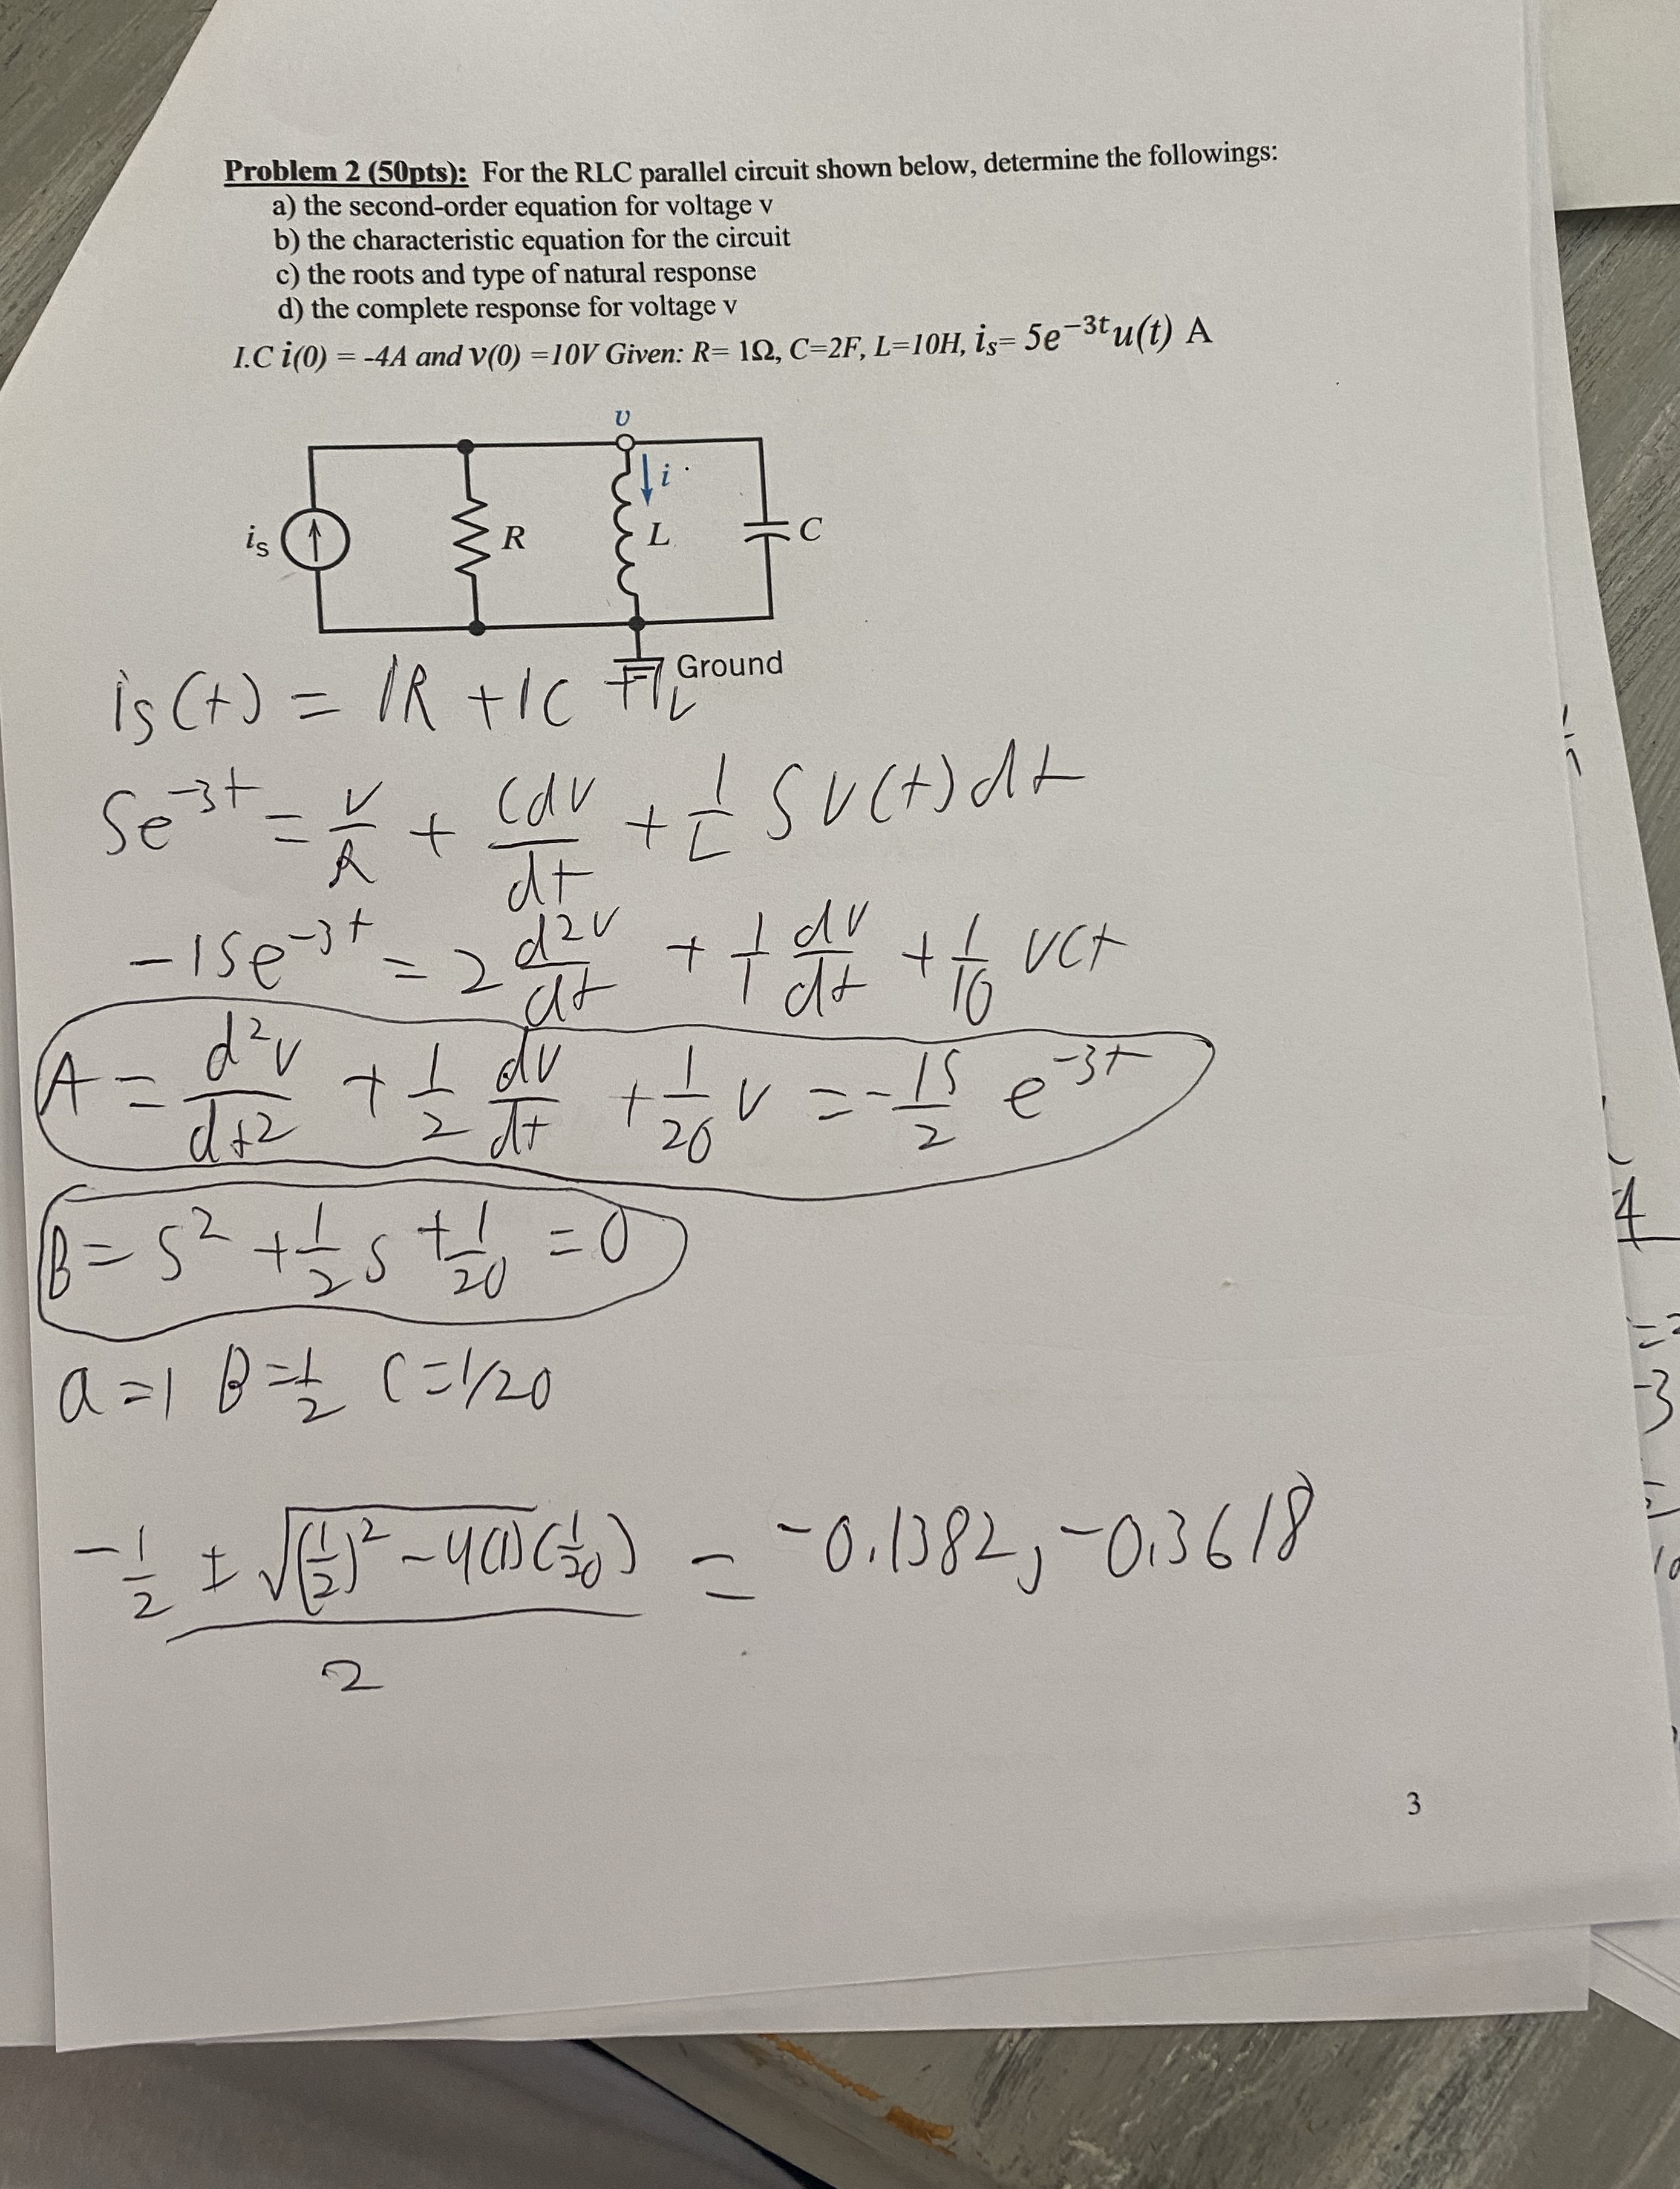 Problem 2 (50pts): For the RLC parallel circuit shown below, determine the followings:
a) the second-order equation for voltage v
b) the characteristic equation for the circuit
c) the roots and type of natural response
d) the complete response for voltage v
I.C i(0) = -4A and v(0) =10V Given: R= 1Ω, C=2F, L=10H, iₛ= 5e^{-3t}u(t) A
υ
i
iₛ
R
L
C
Ground
is(t) = IR + IC + IL
5e^{-3t} = V/R + Cdv/dt + 1/L ∫v(t)dt
-15e^{-3t} = 2 d2v/dt + 1/1 dv/dt + 1/10 v(t
A = d²v/dt2 + 1/2 dv/dt + 1/20 v = -15/2 e^{-3t}
B = s² + 1/2 s + 1/20 = 0
a=1 B=1/2 C=1/20
-1/2 ± √((1/2)² - 4(1)(1/20)) / 2 = -0.1382, -0.3618
3